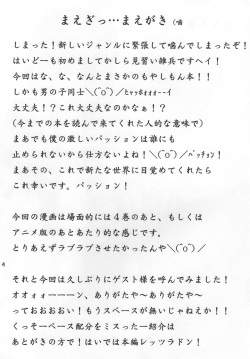 まえぎっ…まえがき(噛
しまった！新しいジャンルに緊張して噛んでしまったぞ！
はいどーも初めましてかしら見習い雑兵ですヘイ！
今回はな、な、なんとまさかのもやしもん本！！
しかも男の子同士＼(^o^)／ﾋｬｯﾎｫｫｫｰｰｲ
大丈夫！？これ大丈夫なのかなぁ！？
(今までの本を読んで来てくれた人的な意味で)
まあでも僕の激しいパッションは誰にも
止められないから仕方ないよね！＼(^o^)／ﾊﾟｯﾁｮﾝ！
まあその、これで新たな世界に目覚めてくれたら
これ幸いです。パッション！
今回の漫画は場面的には４巻のあと、もしくは
アニメ版のあとあたり的な感じです。
とりあえずラブラブさせたかったんや＼(^o^)／
それと今回は久しぶりにゲスト様を呼んでみました！
オオォォーーーン、ありがたや～ありがたや～
っておおおおい！もうスペースが無いじゃねえか！！
くっそーペース配分をミスった－紹介は
あとがきの方で！はいでは本編レッツラドン！
4